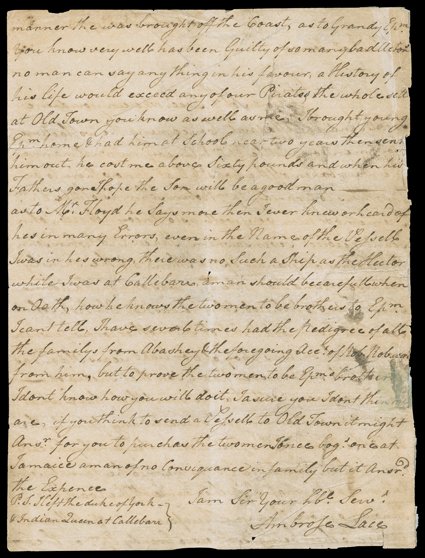 manner the was brought off the Coast, as to Grandy Epm.
You know very well has been Guilty of so many bad Actons
no man can say any thing in his favour, a History of
his life would exceed any of our Pirates, the whole sett
at Old Town you know as well as me. I brought young
Epm. home & had him at School near two years then sent
him out, he cost me above Sixty pounds and when his
Fathers gone I hope the Son will be a good man
as to Mr. Floyd he Says more then I ever knew or heard of
hes in many Errors, even in the Name of the Vessell
I was in hes wrong, there was no Such a Ship as the Hector
while I was at Callebarr, a man should be carefull when
on Oath, how he knows the two men to be brothers to Epm.
I cant tell, I have several times had the Pedigree of all
the familys from Abashey & the foregoing Acct. of Robin
from him, but to prove the two men to be Epms. brothers
I dont know how you will do it, I asure you I dont think
are, if you think to send a Vessell to Old Town it might
Ansr. for you to purchas the two men I once bogt. one at
Jamaica a man of no Consiquance in family but it Ansrd.
the Expence
P.S. I left the duke of York
& Indian Queen at Callebarr
I am Sir Your Hble. Servt.
Ambrose Lace